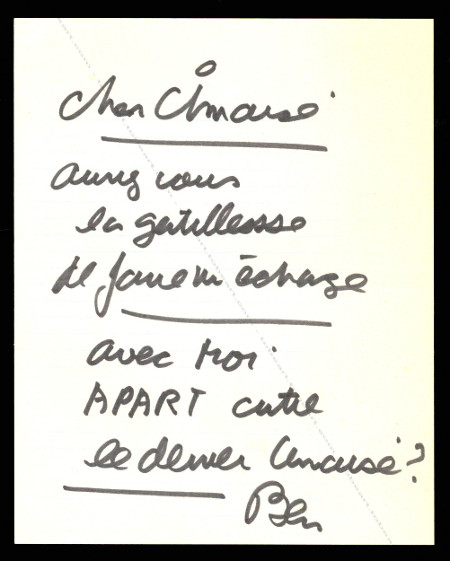 cher Cimaise
aurez vous
la gentillesse
de faire un échange
avec moi
APART contre
le dernier Cimaise?
Ben